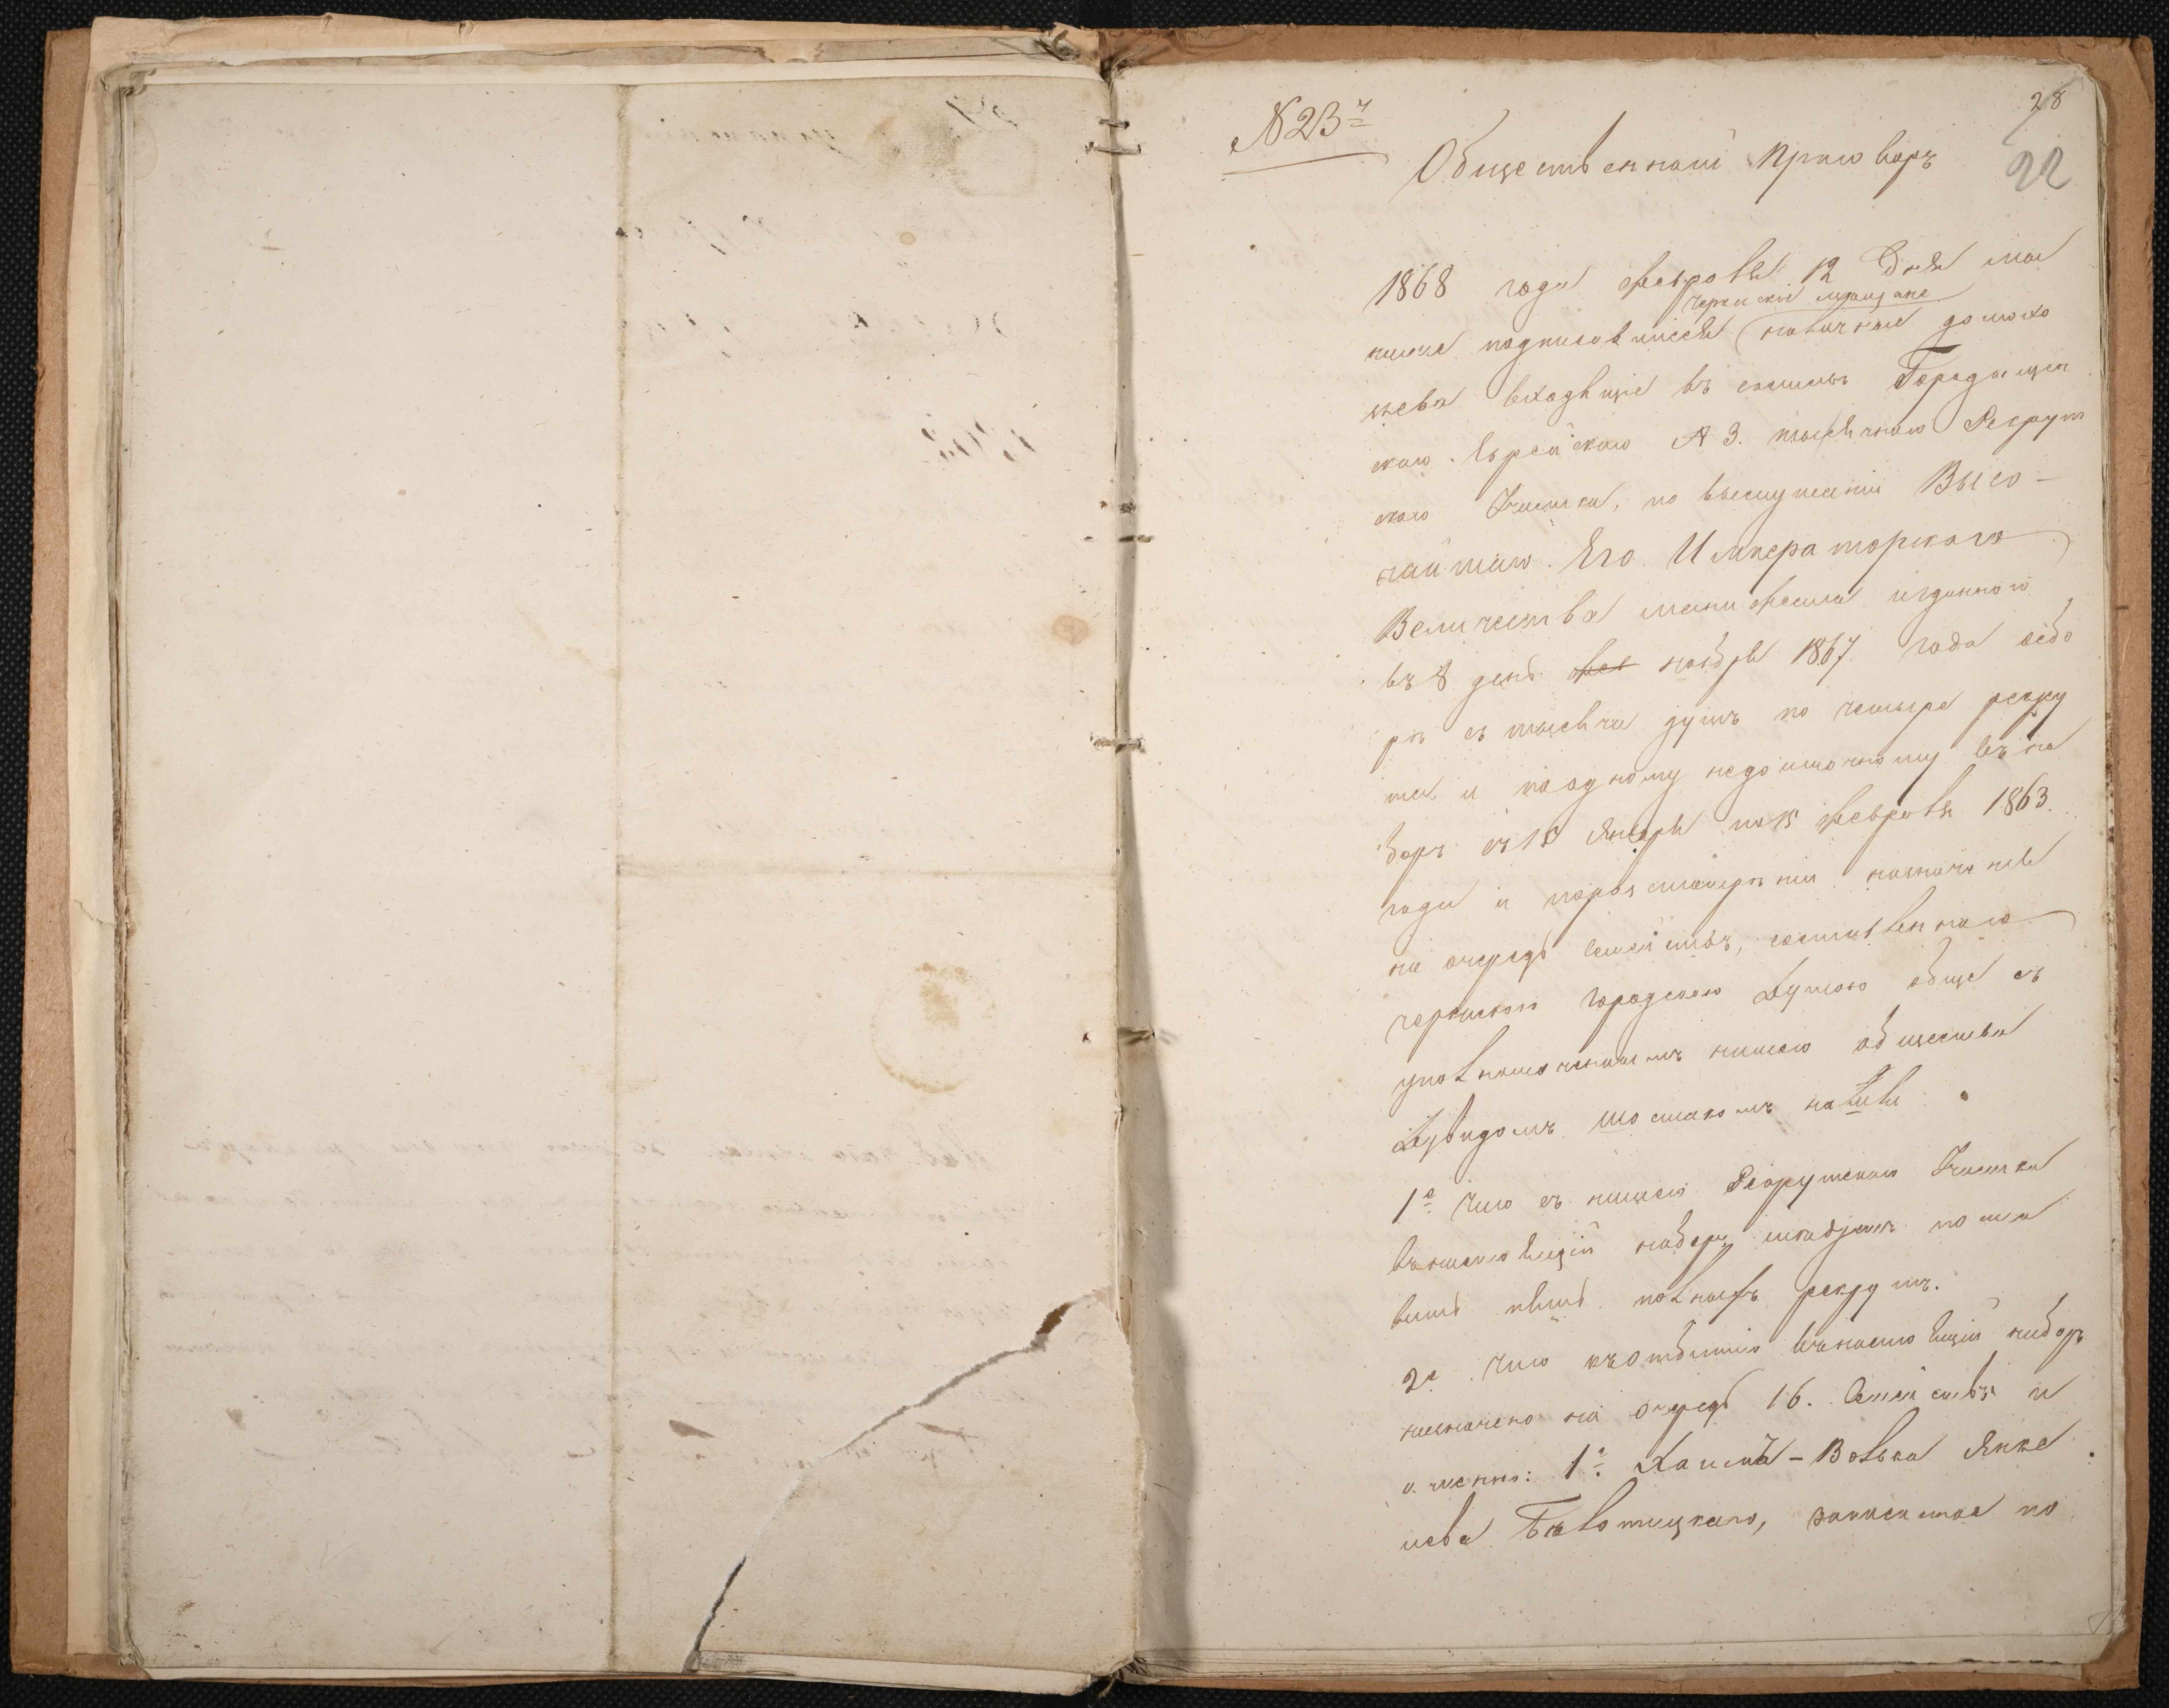 28
N 23й
22
Общественный Приговоръ
1868 года февраля 12 Дня мы
Черкаские мещане
ниже подписавшиеся наличные домохо
зяева входящіе въ составъ Городищен
скаго Еврейскаго № 3. тысячнаго Рекрут
скаго Участка, по выслушаніи Высо-
чайшаго Его Императорскаго
Величества манифеста изданнаго
въ 8 день фев ноября 1867 года о сбо
рѣ съ тысячи душъ по четыре рекру
та и по одному недоимочному въ на
боръ съ 15 Января по 15 февраля 1863.
года и по разсмотрѣнии назначения
на очередь семействъ, составленнаго
черкаскою Городскою Думою обще съ
уполномоченнымъ нашего общества
Дувидомъ Шостакомъ нашли
1е Что съ нашего Рекрутскаго Участка
въ настоящій наборъ слѣдуетъ поста
вить пять полныхъ рекрутъ.
2е Что къ отбытию въ настоящій наборъ
назначено на очередь 16. Семействъ и
именно: 1е Хаима-Волька Янке
лева
записанное по